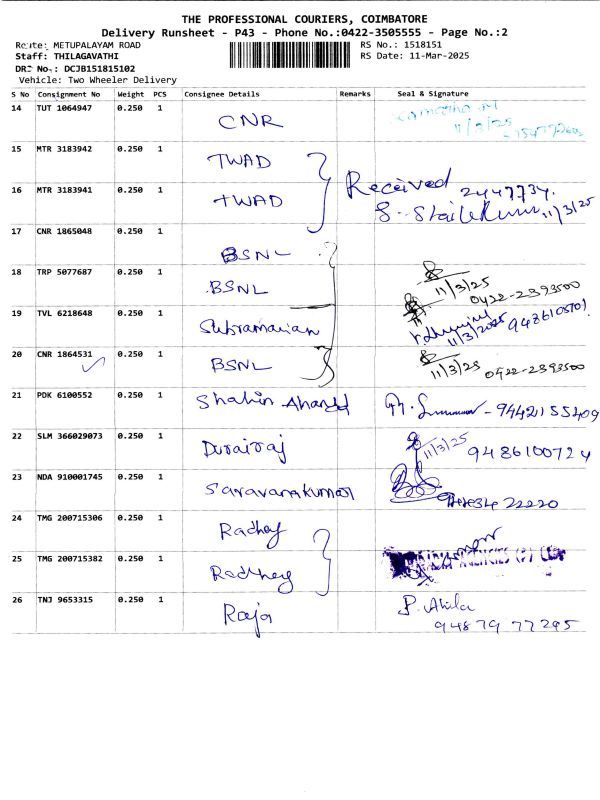 THE PROFESSIONAL COURIERS, COIMBATORE
Delivery Runsheet - P43 - Phone No.:0422-3505555 - Page No.:2
Route: METUPALAYAM ROAD
RS No.: 1518151
Staff: THILAGAVATHI
RS Date: 11-Mar-2025
DRS No.: DCJB151815102
Vehicle: Two Wheeler Delivery
S No Consignment No Weight PCS Consignee Details Remarks Seal & Signature
14 TUT 1064947 0.250 1 CNR
11/3/25
15 MTR 3183942 0.250 1 TWAD
Received 2447734.
16 MTR 3183941 0.250 1 TWAD
11/3/25
17 CNR 1865048 0.250 1 BSNL
18 TRP 5077687 0.250 1 BSNL
11/3/25 0422-2393500
19 TVL 6218648 0.250 1 Subramanian
11/3/2025 9486105701
20 CNR 1864531 0.250 1 BSNL
11/3/25 0422-2393500
21 PDK 6100552 0.250 1 Shahin Ahamed
- 9442155409
22 SLM 366029073 0.250 1 Durairaj
11/3/25 9486100724
23 NDA 910001745 0.250 1 Saravanakumar
22220
24 TMG 200715306 0.250 1 Radhey
25 TMG 200715382 0.250 1 Radhey
AGENCIES (P) LTD
26 TNJ 9653315 0.250 1 Raja
P. Akila
94879 77295